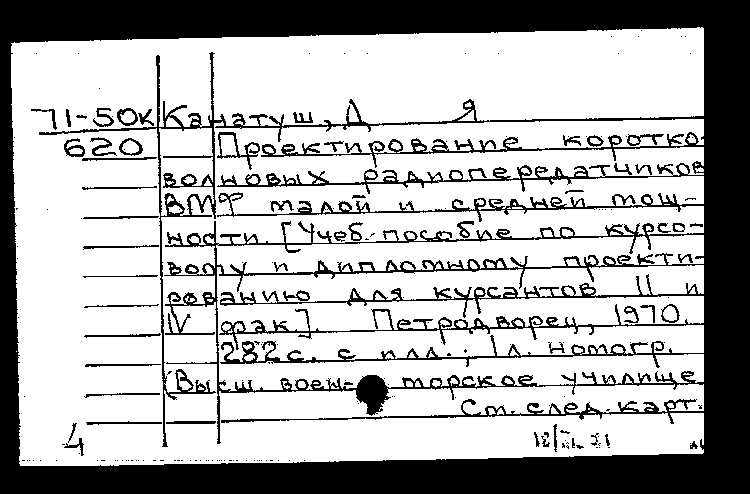 71-50к Канатуш, Д Я
620 Проектирование коротко-
волновых радиопередатчиков
ВМФ малой и средней мощ-
ности. [Учеб. пособие по курсо-
вому и дипломному проекти-
рованию для курсантов II и
IV фак.]. Петродворец, 1970.
282 с. с илл.; 1 л. номогр.
(Высш. воен- морское училище
См. след. карт.
4